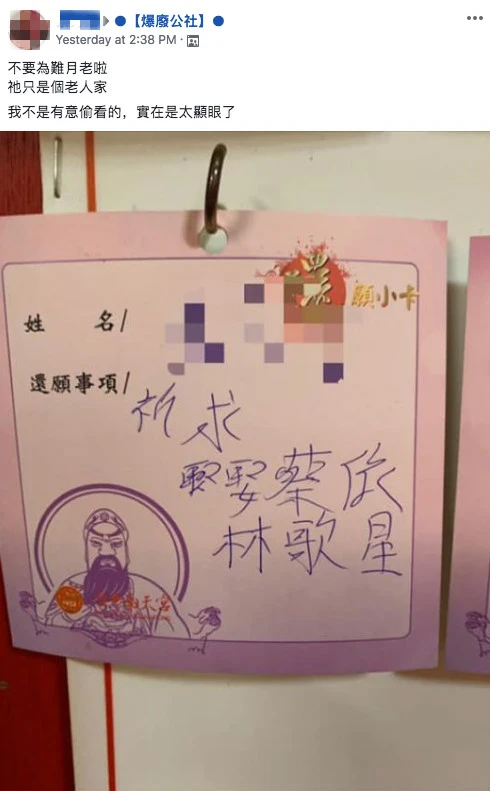 【爆廢公社】
Yesterday at 2:38 PM
不要為難月老啦
祂只是個老人家
我不是有意偷看的，實在是太顯眼了
願小卡
姓 名/
還願事項/
祈求
娶蔡依
林歌星
南天宮